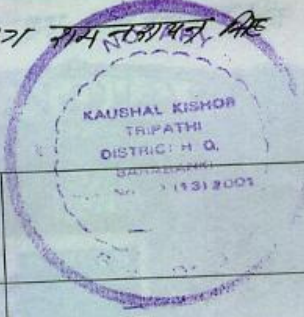 राम नारायण सिंह
NOTARY
KAUSHAL KISHOR
TRIPATHI
DISTRICT H Q.
BARABANKI
(13) 2001